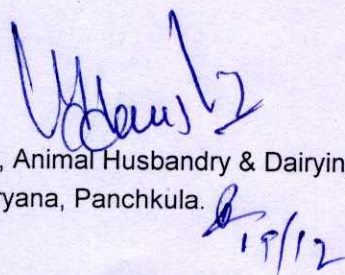 , Animal Husbandry & Dairyin
ryana, Panchkula.
19/12